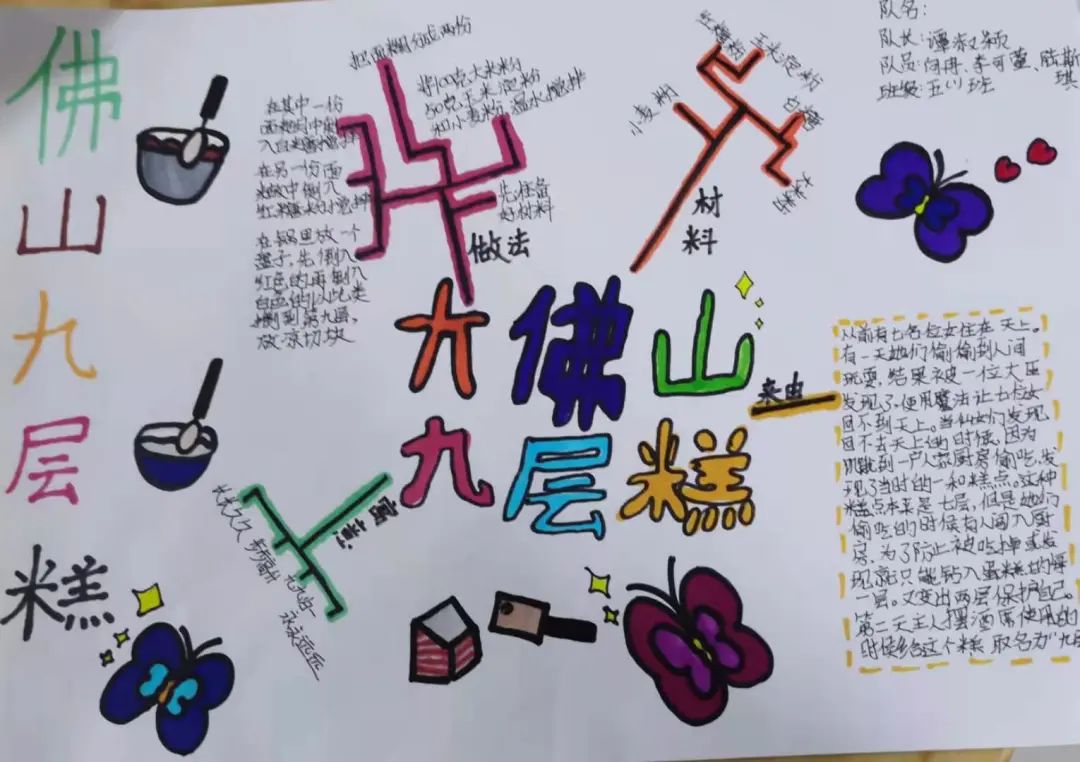 佛山九层糕
队名：
队长：谭淑颖
队员：何冉、李可萱、陆斯琪
班级：五(1)班
把面糊分成两份
将100克大米粉
50克玉米淀粉
和小麦粉温水搅拌
先准备
好材料
做法
在其中一份
面糊中倒
入白糖搅拌
在另一份面
糊中倒入
红糖水搅拌
在锅里放一个
盘子先倒入
红色的再倒入
白色的以此类
推到第九层，
放凉切块
玉米淀粉
白糖
小麦粉
材
料
佛山
九层糕
来由
从前有七名仙女住在天上。
有一天她们偷偷到人间
玩耍，结果被一位大臣
发现了.便用魔法让七仙女
回不到天上。当仙女们发现
回不去天上的时候，因为
饥饿到一户人家厨房偷吃，发
现了当时的一种糕点。这种
糕点本来是七层，但是她们
偷吃的时候有人闯入厨
房，为了防止被吃掉或发
现就只能钻入蛋糕的每
一层。又变出两层保护自己。
第二天主人摆酒席使用的
时候给这个糕，取名为"九层
寓意：
长长久久
步步高升
永永远远